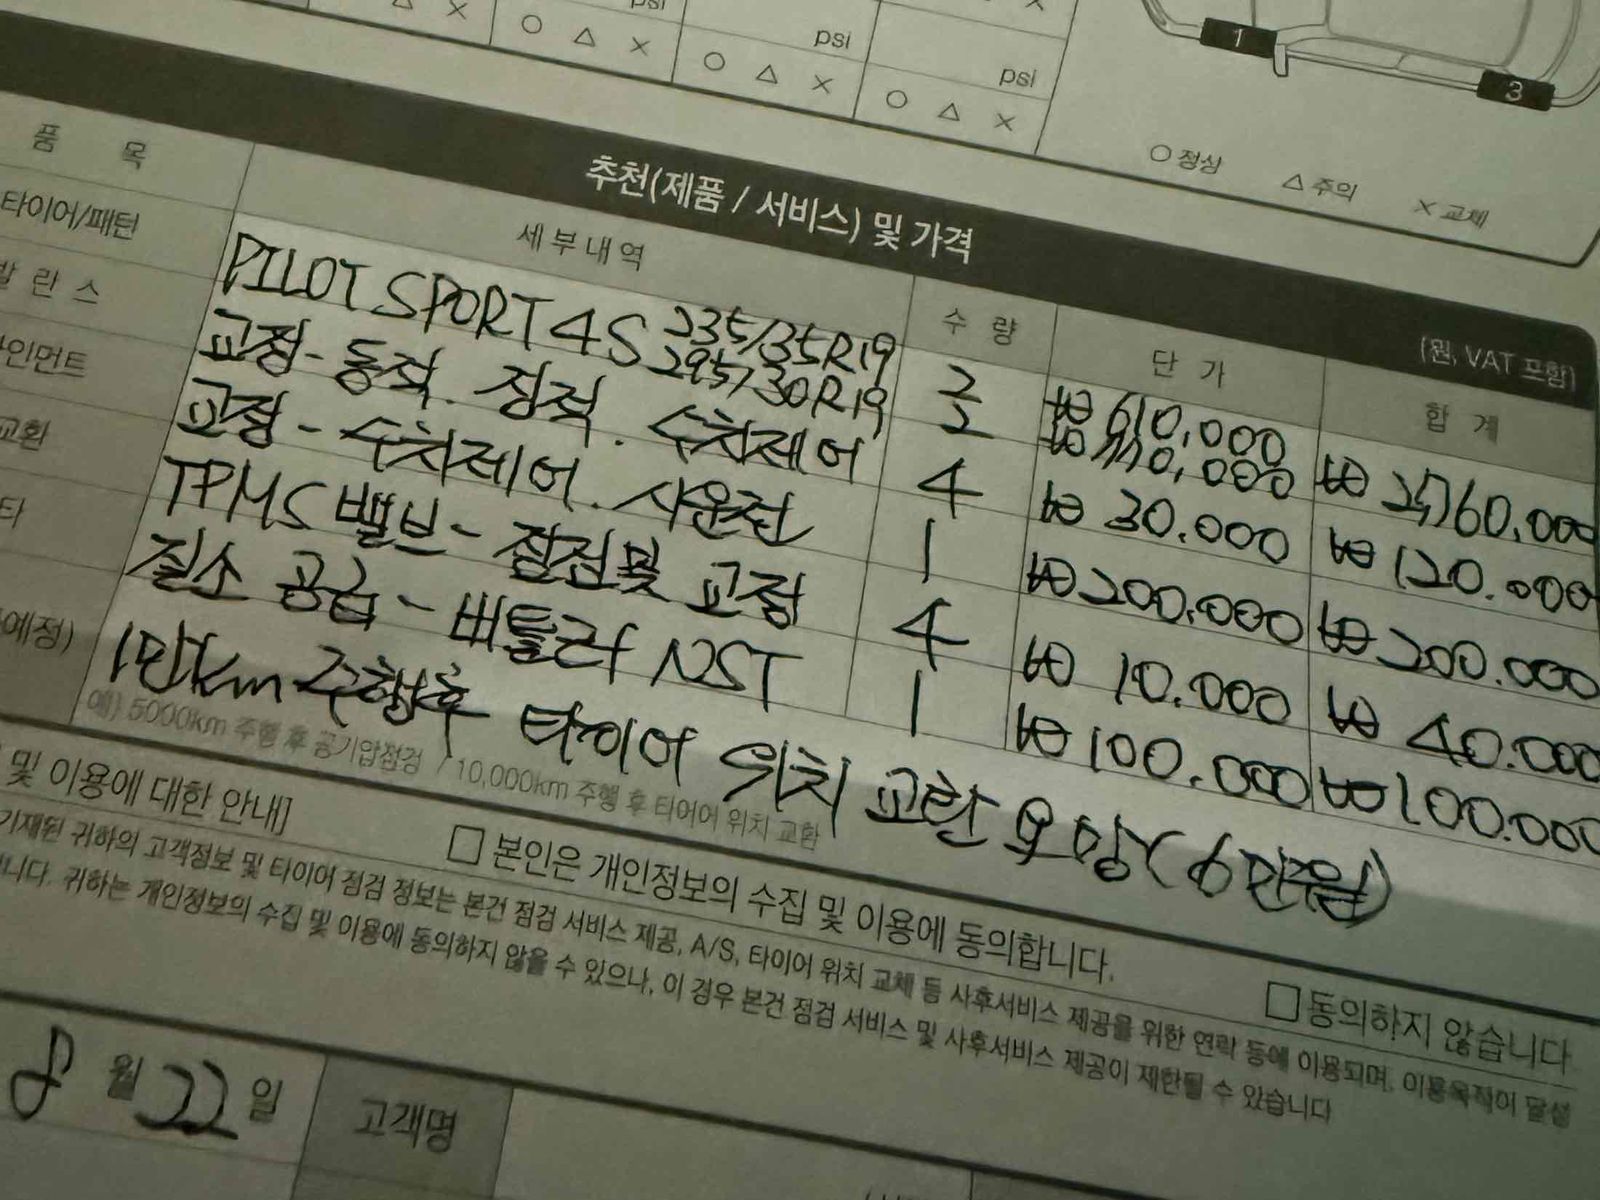 psi
△ ×
○ △ ×
psi
○ △ ×
psi
○ △ ×
×
1
3
○ 정상 △ 주의 × 교체
추천(제품 / 서비스) 및 가격
(원, VAT 포함)
품 목 세부내역 수 량 단 가 합 계
타이어/패턴 PILOT SPORT 4S 235/35R19 2 ₩ 610,000
295/30R19 2 ₩ 770,000 ₩ 2,760,000
발 란 스 교정 - 동적. 정적. 수치제어 4 ₩ 30.000 ₩ 120.000
인먼트 교정 - 수치제어. 시운전 1 ₩ 200.000 ₩ 200.000
교환 TPMS 밸브 - 점검 및 교정 4 ₩ 10.000 ₩ 40.000
타 질소 공급 - 버틀러 NST 1 ₩ 100.000 ₩ 100.000
예정) 1만km 주행후 타이어 위치 교환 요망 (6만원)
예) 5000km 주행 후 공기압점검 / 10,000km 주행 후 타이어 위치 교환
및 이용에 대한 안내]
□ 본인은 개인정보의 수집 및 이용에 동의합니다.
□ 동의하지 않습니다
기재된 귀하의 고객정보 및 타이어 점검 정보는 본건 점검 서비스 제공, A/S, 타이어 위치 교체 등 사후서비스 제공을 위한 연락 등에 이용되며, 이용목적이 달성
니다. 귀하는 개인정보의 수집 및 이용에 동의하지 않을 수 있으나, 이 경우 본건 점검 서비스 및 사후서비스 제공이 제한될 수 있습니다
8 월 22 일 고객명